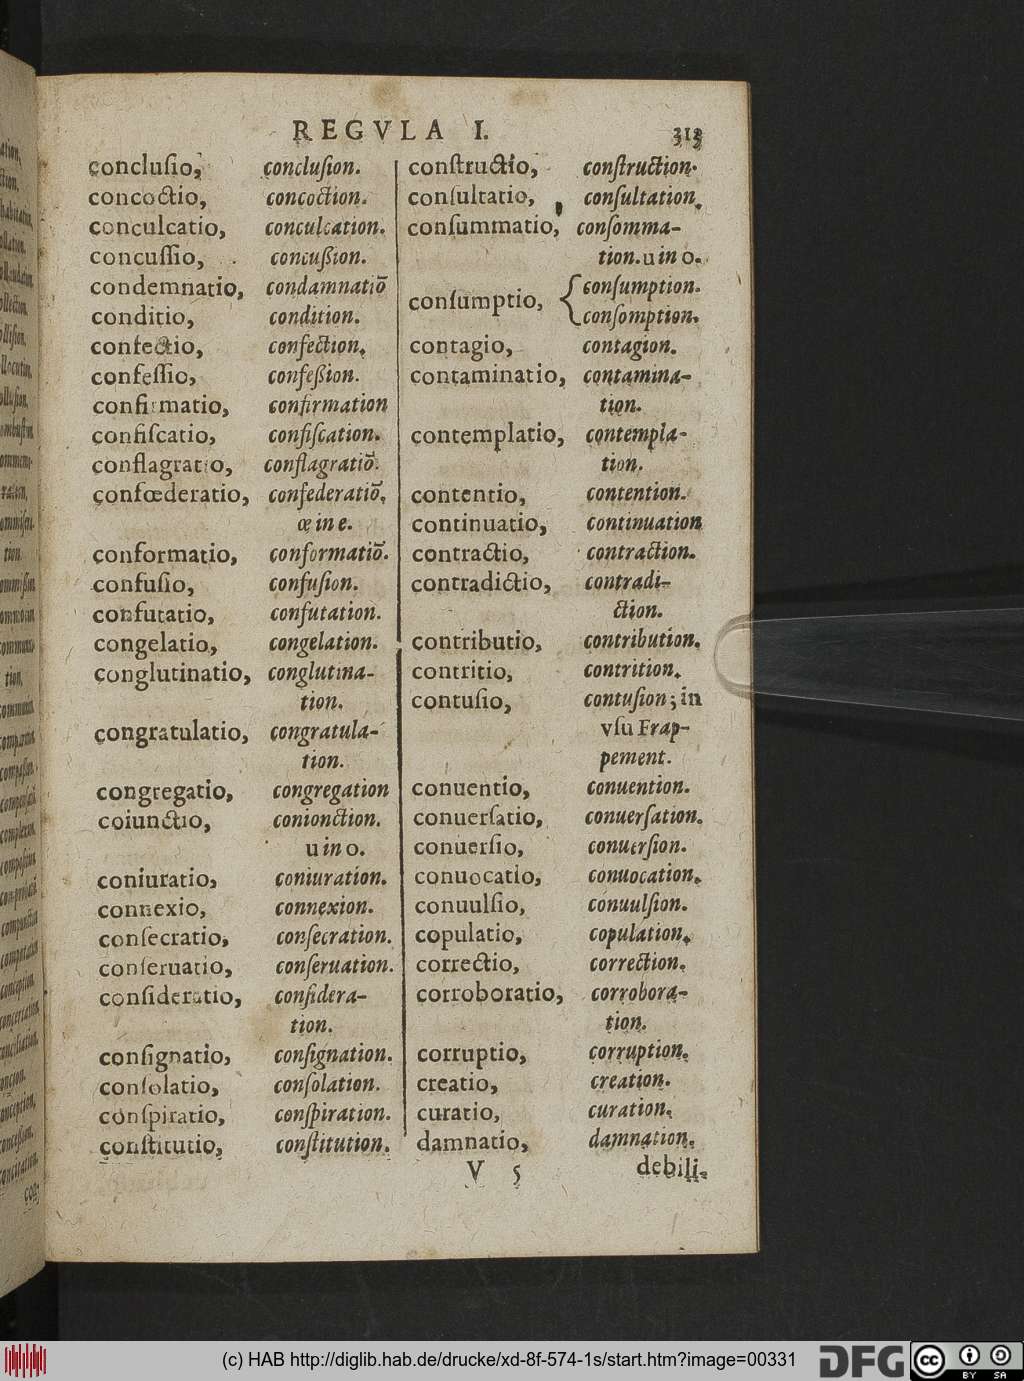 REGVLA I. 313
concluſio, concluſion.
concoctio, concoction.
conculcatio, conculcation.
concuſſio, concußion.
condemnatio, condamnatiō
conditio, condition.
confectio, confection.
confeſſio, confeßion.
confirmatio, confirmation
confiſcatio, confiſcation.
conflagratio, conflagratiō.
confœderatio, confederatiō,
œ in e.
conformatio, conformatiō.
confuſio, confuſion.
confutatio, confutation.
congelatio, congelation.
conglutinatio, conglutina-
tion.
congratulatio, congratula-
tion.
congregatio, congregation
coiunctio, conionction.
u in o.
coniuratio, coniuration.
connexio, connexion.
conſecratio, conſecration.
conſeruatio, conſeruation.
conſideratio, conſidera-
tion.
conſignatio, conſignation.
conſolatio, conſolation.
conſpiratio, conſpiration.
conſtitutio, conſtitution.
conſtructio, conſtruction.
conſultatio, conſultation.
conſummatio, conſomma-
tion. u in o.
conſumptio, { conſumption.
conſomption.
contagio, contagion.
contaminatio, contamina-
tion.
contemplatio, contempla-
tion.
contentio, contention.
continuatio, continuation
contractio, contraction.
contradictio, contradi-
ction.
contributio, contribution.
contritio, contrition.
contuſio, contuſion; in
vſu Frap-
pement.
conuentio, conuention.
conuerſatio, conuerſation.
conuerſio, conuerſion.
conuocatio, conuocation.
conuulſio, conuulſion.
copulatio, copulation.
correctio, correction.
corroboratio, corrobora-
tion.
corruptio, corruption.
creatio, creation.
curatio, curation.
damnatio, damnation.
V 5 debili.
(c) HAB http://diglib.hab.de/drucke/xd-8f-574-1s/start.htm?image=00331 DFG cc BY SA